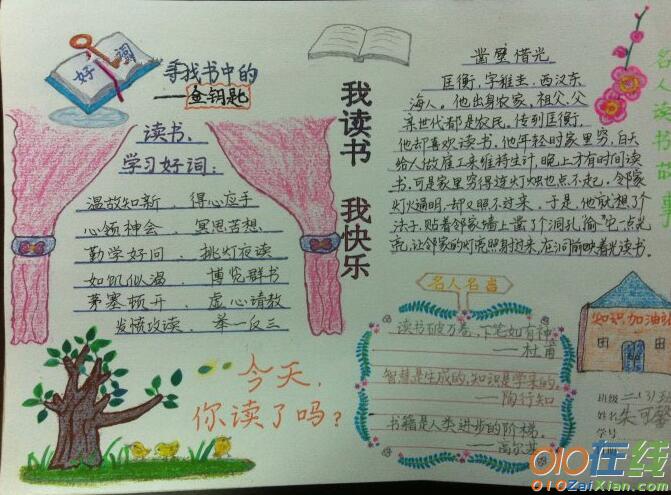 好词
寻找书中的
——金钥匙
读书、
学习好词：
温故知新、得心应手
心领神会、冥思苦想
勤学好问、挑灯夜读
如饥似渴、博览群书
茅塞顿开、虚心请教
发愤攻读、举一反三
今天，
你读了吗？
我读书 我快乐
凿壁借光
匡衡，字稚圭，西汉东
海人。他出身农家，祖父、父
亲世代都是农民。传到匡衡，
他却喜欢读书，他年轻时家里穷，白天
给人做雇工来维持生计，晚上才有时间读
书。可是家里穷得连灯烛也点不起。邻家
灯火通明，却又照不过来，于是，他就想个
法子，贴着邻家墙上凿了个洞孔"偷"它一点光
亮，让邻家的灯光照射过来，在洞前映着光读书。
名人读书的故事
名人名言
读书破万卷，下笔如有神
——杜甫
智慧是生成的，知识是学来的。
——陶行知
书籍是人类进步的阶梯。
——高尔基
知识加油站
班级
姓名 朱可
学号
010在线
010ZaiXian.com